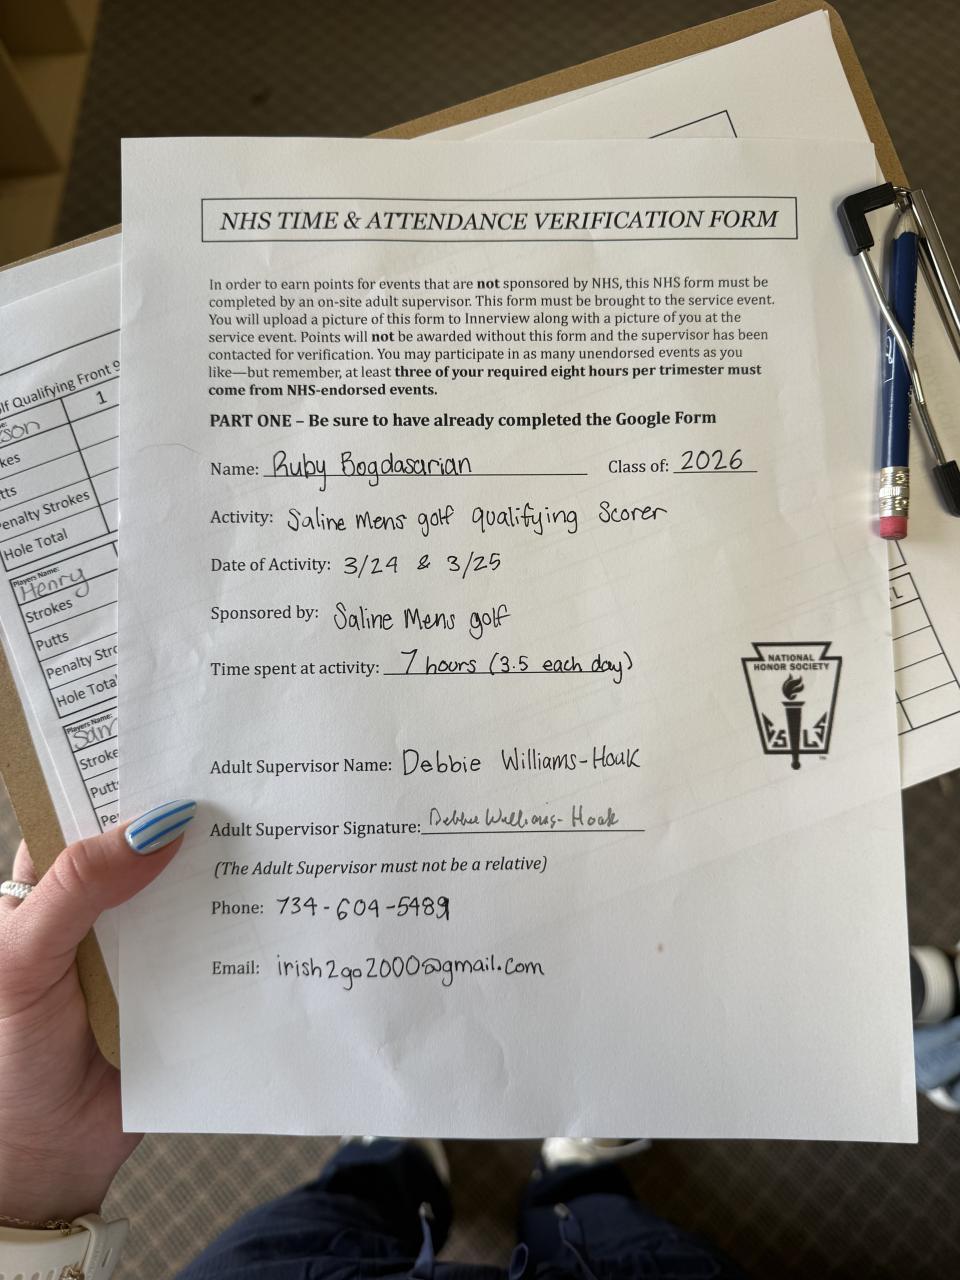 NHS TIME & ATTENDANCE VERIFICATION FORM
In order to earn points for events that are not sponsored by NHS, this NHS form must be
completed by an on-site adult supervisor. This form must be brought to the service event.
You will upload a picture of this form to Innerview along with a picture of you at the
service event. Points will not be awarded without this form and the supervisor has been
contacted for verification. You may participate in as many unendorsed events as you
like—but remember, at least three of your required eight hours per trimester must
come from NHS-endorsed events.
PART ONE – Be sure to have already completed the Google Form
Name: Ruby Bogdasarian Class of: 2026
Activity: Saline Mens golf qualifying Scorer
Date of Activity: 3/24 & 3/25
Sponsored by: Saline Mens golf
Time spent at activity: 7 hours (3.5 each day)
NATIONAL
HONOR SOCIETY
C S L S
Adult Supervisor Name: Debbie Williams-Houk
Adult Supervisor Signature: Debbie Williams-Houk
(The Adult Supervisor must not be a relative)
Phone: 734-604-5489
Email: irish2go2000@gmail.com
lf Qualifying Front 9
1
son
kes
tts
enalty Strokes
Hole Total
Players Name:
Henry
Strokes
Putts
Penalty Stro
Hole Total
Players Name:
Sam
Stroke
Putt
Pe
L